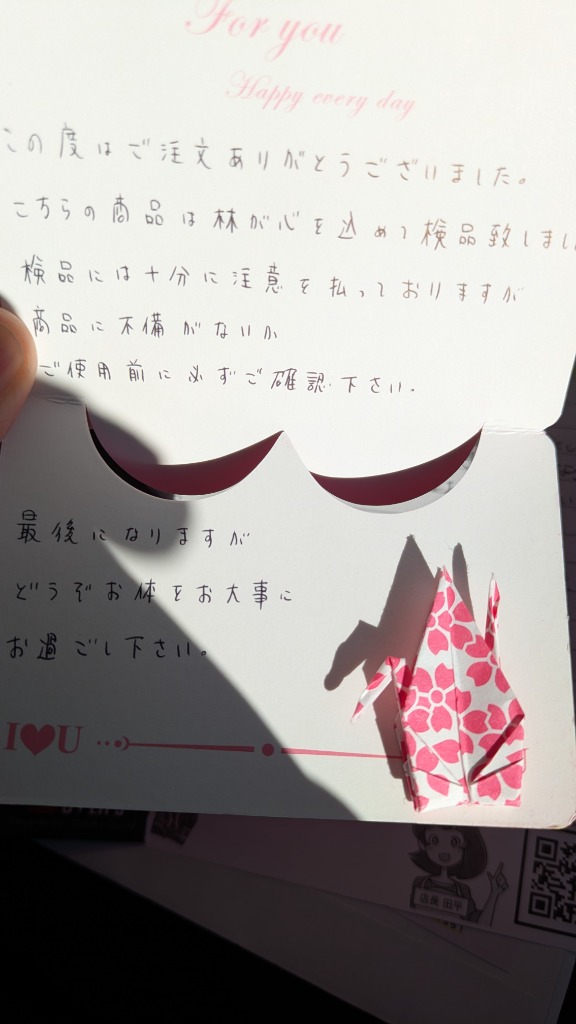 For you
Happy every day
この度はご注文ありがとうございました。
こちらの商品は林が心を込めて検品致しまし
検品には十分に注意を払っておりますが
商品に不備がないか
ご使用前に必ずご確認下さい.
最後になりますが
どうぞお体をお大事に
お過ごし下さい。
I♥U
店長 田平